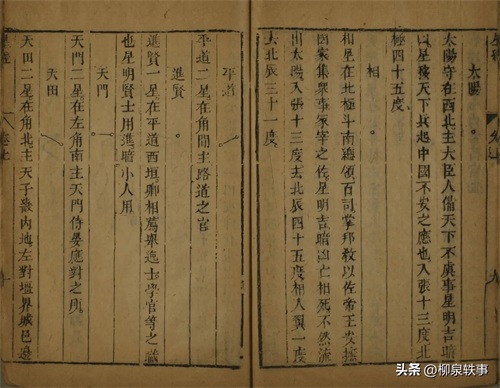 太陽
太陽守在西北主大臣人備天下不虞事星明吉暗
凶星移天下兵起中國不安之應也入張十三度北
極四十五度
相
相星在北極斗南總領百司掌邦敎以佐帝王安撫
國家集衆事冢宰之佐星明吉暗凶亡相死不然流
出太陽入張十三度去北辰四十五度相入翼一度
去北辰三十一度
平道
平道二星在角間主路道之官
進賢
進賢一星在平道西垣卿相薦舉逸士學官等之職
也星明賢士用進暗小人用
天門
天門二星在左角南主天門侍宴應對之所
天田
天田二星在角北主天子畿內地左對壇界城邑邊
星經
卷上
头条 @柳泉轶事